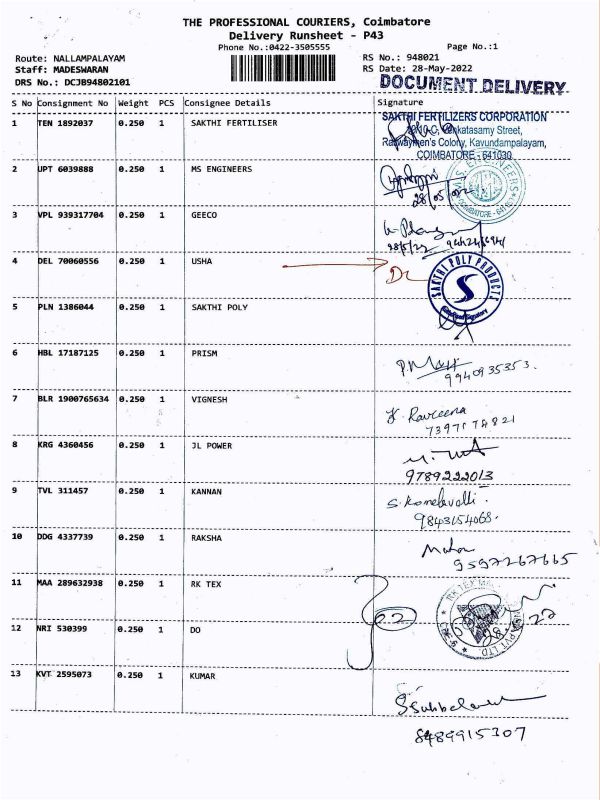 THE PROFESSIONAL COURIERS, Coimbatore
Delivery Runsheet - P43
Phone No.:0422-3505555
Page No.:1
Route: NALLAMPALAYAM
RS No.: 948021
Staff: MADESWARAN
RS Date: 28-May-2022
DRS No.: DCJB94802101
DOCUMENT DELIVERY
S No Consignment No Weight PCS Consignee Details Signature
1 TEN 1892037 0.250 1 SAKTHI FERTILISER
SAKTHI FERTILIZERS CORPORATION
Venkatasamy Street,
Railwaymen's Colony, Kavundampalayam,
COIMBATORE - 641030
2 UPT 6039888 0.250 1 MS ENGINEERS
M.S. ENGINEERS
COIMBATORE
28/05/
3 VPL 939317704 0.250 1 GEECO
28/5/22
4 DEL 70060556 0.250 1 USHA
SAKTHI POLY PRODUCTS
S
5 PLN 1386044 0.250 1 SAKTHI POLY
6 HBL 17187125 0.250 1 PRISM
9940935353.
7 BLR 1900765634 0.250 1 VIGNESH
K. Raveena
8 KRG 4360456 0.250 1 JL POWER
9789222013
9 TVL 311457 0.250 1 KANNAN
S. Komalavalli.
9843154068.
10 DDG 4337739 0.250 1 RAKSHA
9597267665
11 MAA 289632938 0.250 1 RK TEX
12 NRI 530399 0.250 1 DO
13 KVT 2595073 0.250 1 KUMAR
8489915307